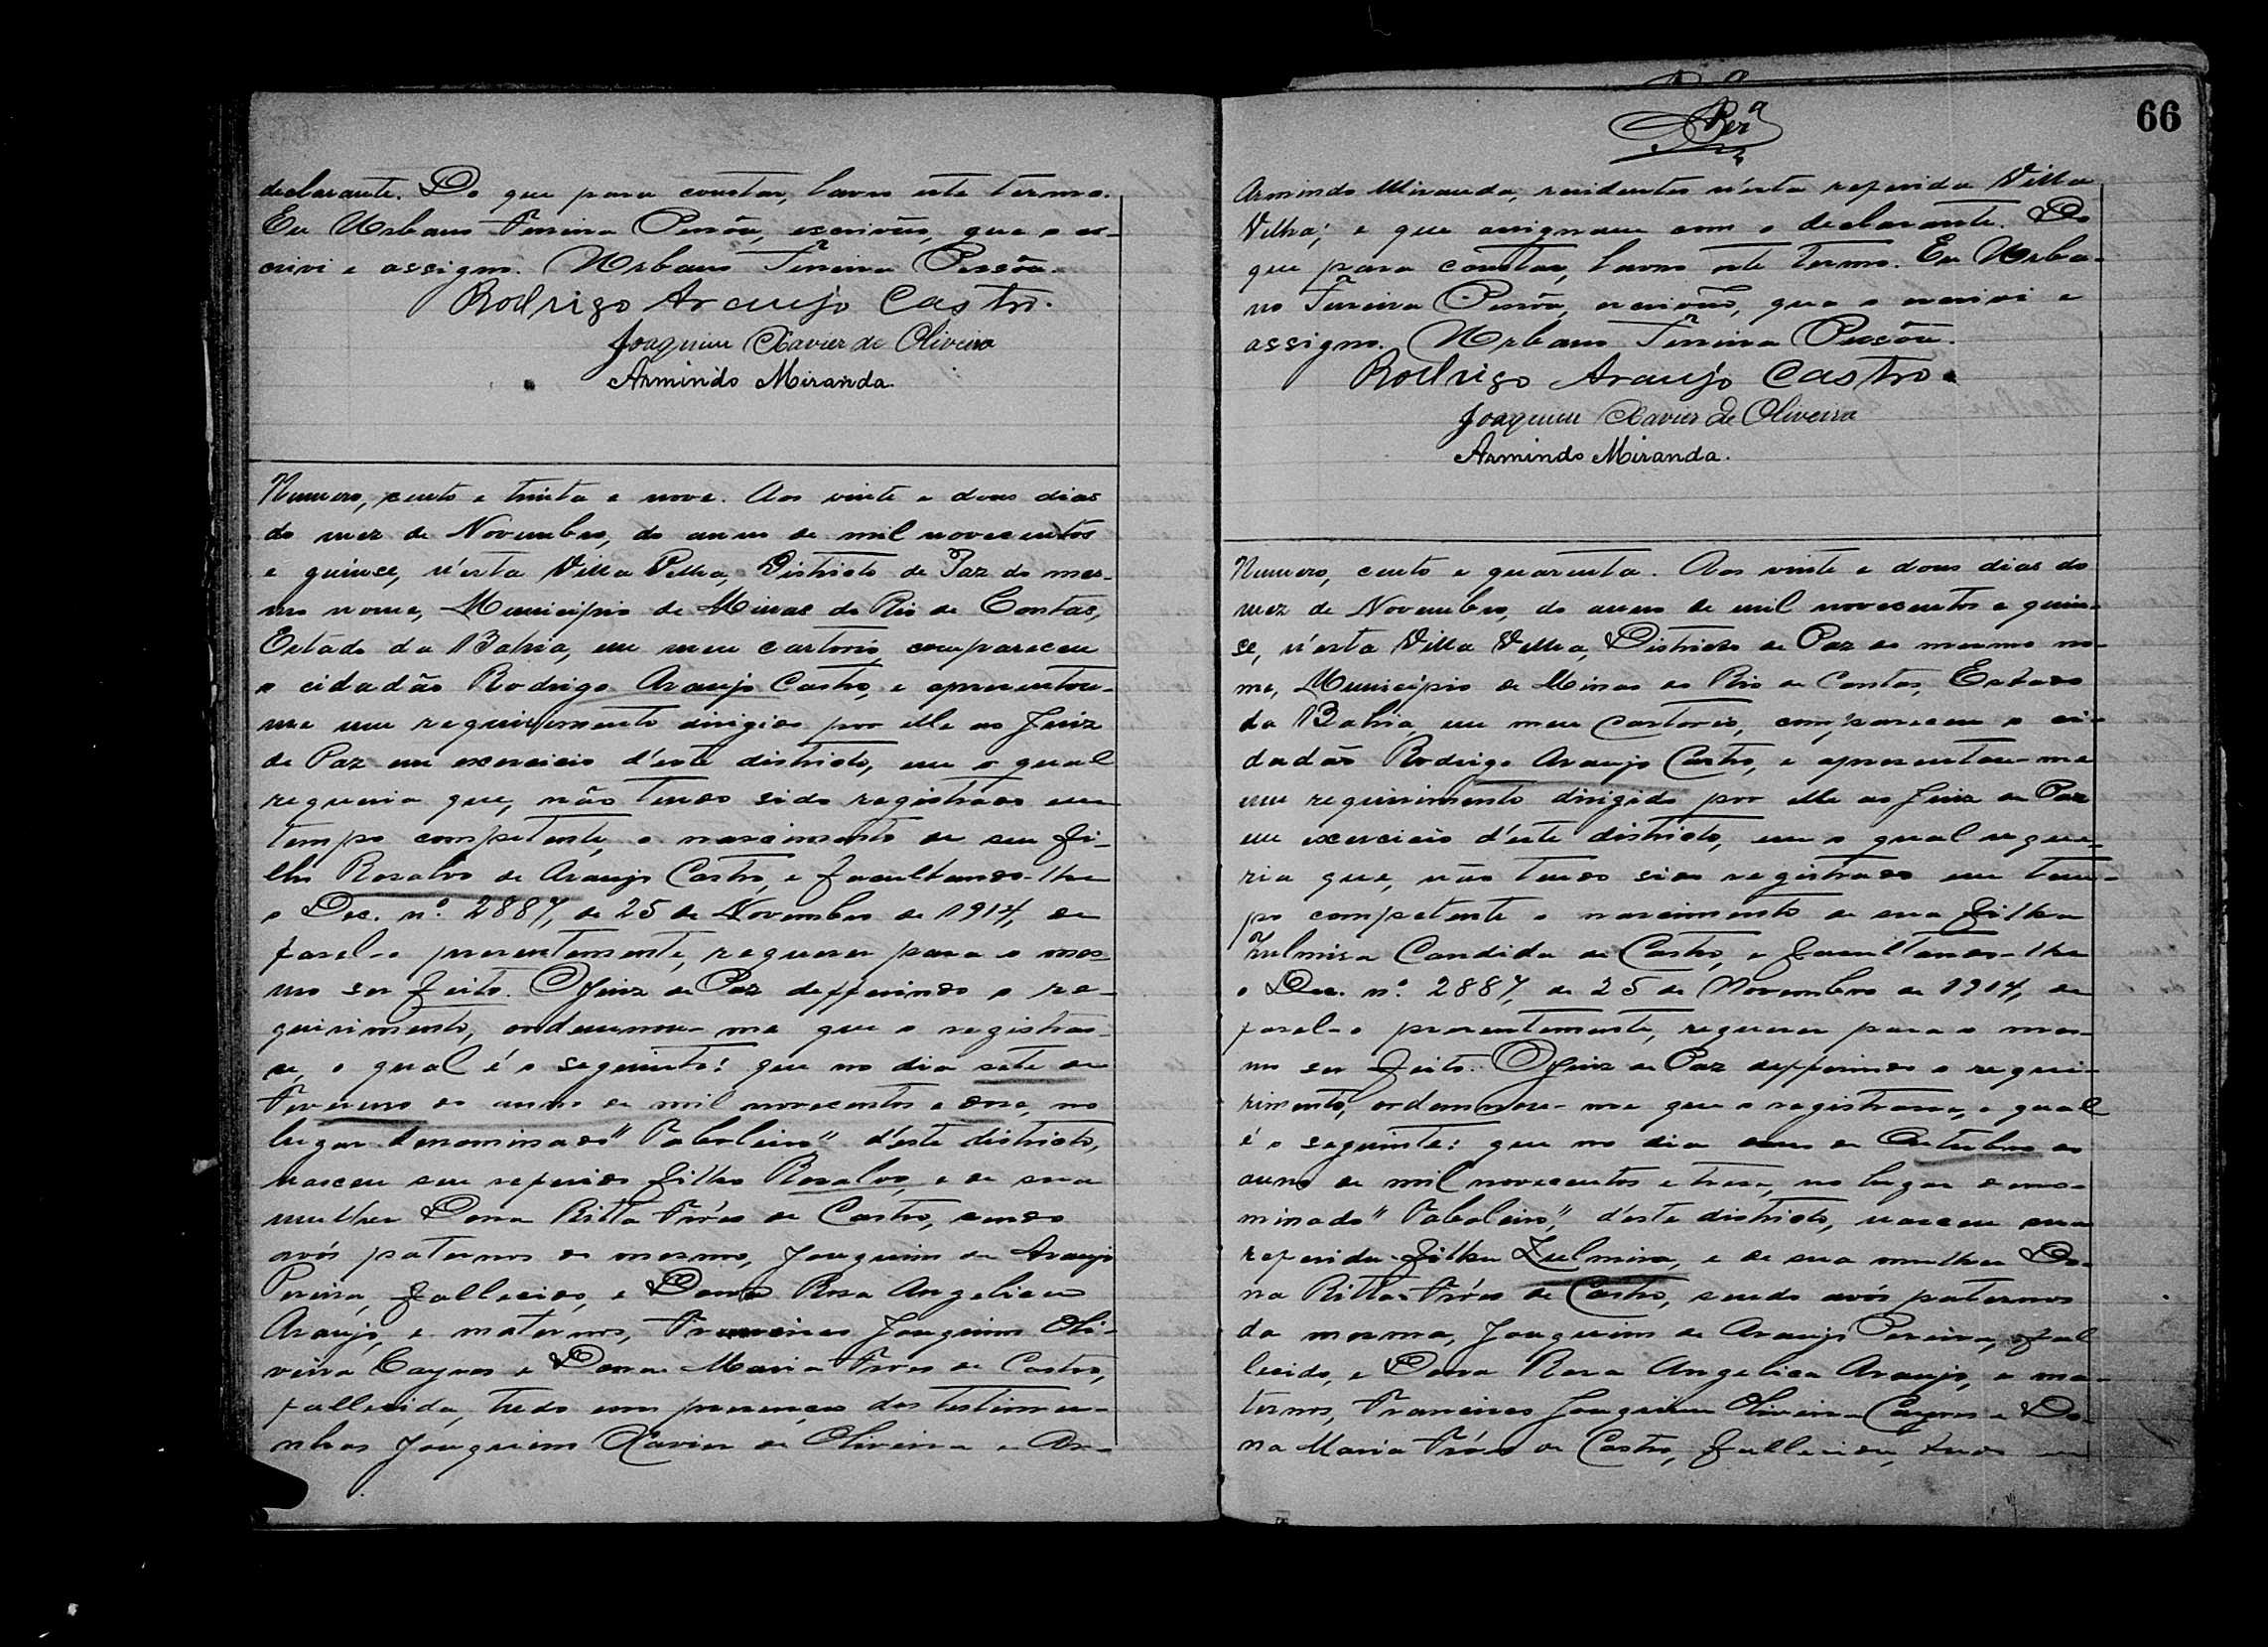 declarante. Do que para constar, lavro este termo.
Eu Urbano Ferreira Pessôa, escrivão, que o es-
crivi e assigno. Urbano Ferreira Pessôa.
Rodrigo Araujo Castro.
Joaquim Xavier de Oliveira
Armindo Miranda.
Numero, cento e trinta e nove. Aos vinte e dous dias
do mez de Novembro, do anno de mil novecentos
e quinse, n'esta Villa Velha, Districto de Paz do mes-
mo nome, Municipio de Minas do Rio de Contas,
Estado da Bahia, em meu cartorio compareceu
o cidadão Rodrigo Araujo Castro, e apresentou-
me um requirimento dirigido por elle ao Juiz
de Paz em exercicio d'este districto, em o qual
requeria que, não tendo sido registrado em
tempo competente, o nascimento de seu fi-
lho Rosalvo de Araujo Castro, e facultando-lhe
o Dec. nº. 2887, de 25 de Novembro de 1914, de
fasel-o presentemente, requerer para o mes-
mo ser feito. O Juiz de Paz defferindo o re-
quirimento, ordennou-me que o registras-
se, o qual é o seguinte: que no dia sete de
Fevereiro do anno de mil novecentos e dose, no
lugar denominado "Taboleiro" d'este districto,
nasceu seu referido filho Rosalvo, e de sua
mulher Dona Ritta Fróes de Castro, sendo
avós paternos do mesmo, Joaquim de Araujo
Pereira, fallecido, e Dona Rosa Angelica
Araujo, e maternos, Francisco Joaquim Oli-
veira Cayres e Dona Maria Froes de Castro,
fallecida, tudo em presença das testimu-
nhas Joaquim Xavier de Oliveira e Ar-
66
Armindo Miranda, residentes n'esta referida Villa
Velha; e que assignam com o declarante. Do
que para constar, lavro este termo. Eu Urba-
no Ferreira Pessôa, escrivão, que o escrivi e
assigno. Urbano Ferreira Pessôa.
Rodrigo Araujo Castro.
Joaquim Xavier de Oliveira
Armindo Miranda.
Numero, cento e quarenta. Aos vinte e dous dias do
mez de Novembro, do anno de mil novecentos e quin-
se, n'esta Villa Velha, Districto de Paz do mesmo no-
me, Municipio de Minas do Rio de Contas, Estado
da Bahia, em meu cartorio, compareceu o ci-
dadão Rodrigo Araujo Castro, e apresentou-me
um requirimento dirigido por elle ao Juiz de Paz
em exercicio d'este districto, em o qual reque-
ria que, não tendo sido registrado em tem-
po competente o nascimento de sua filha
Zulmira Candida de Castro, e facultando-lhe
o Dec. nº. 2887, de 25 de Novembro de 1914, de
fasel-o presentemente, requerer para o mes-
mo ser feito. O Juiz de Paz defferindo o requi-
rimento, ordennou-me que o registrasse, o qual
é o seguinte: que no dia de Outubro do
anno de mil novecentos e trese, no lugar deno-
minado "Taboleiro," d'este districto, nasceu sua
referida filha Zulmira, e de sua mulher Do-
na Ritta Fróes de Castro, sendo avós paternos
da mesma, Joaquim de Araujo Pereira, fal
lecido, e Dona Rosa Angelica Araujo, e ma-
ternos, Francisco Joaquim Oliveira Cayres e Do-
na Maria Fróes de Castro, fallecida, tudo em